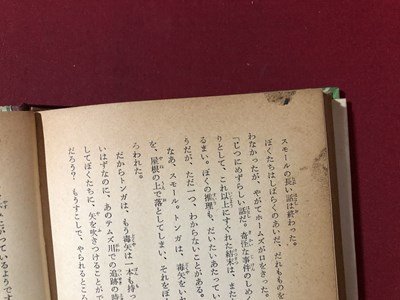 スモールの長い話は終わった。
ぼくたちはしばらくのあいだ、だれもものを
わなかったが、やがてホームズが口をきった。
「じつにめずらしい話だ。奇怪な事件のしめ
りとして、これ以上にすぐれた結末は、また
るまい。ぼくの推理も、だいたいあたってい
うだが、ただ一つ、わからないことがある。
なあ、スモール。トンガは、毒矢をい
を、屋根の上で落としてしまい、それをぼ
ろわれた。
だからトンガは、もう毒矢は一本も持っ
いはずなのに、あのテムズ川での追跡の時
してぼくたちに、矢を吹きつけることがで
だろう？　もうすこしで、やられるところ